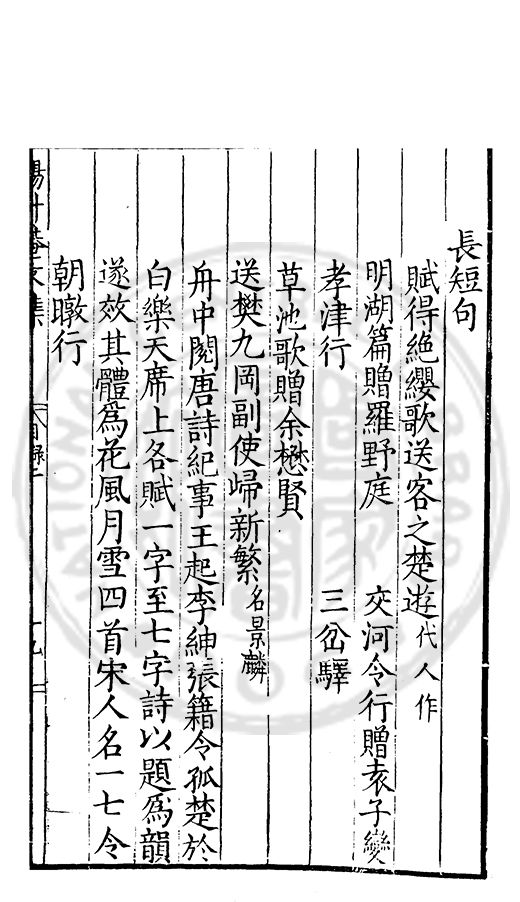 長短句
賦得絶纓歌送客之楚遊代人作
明湖篇贈羅野庭 交河令行贈袁子變
孝津行 三岔驛
草池歌贈余懋賢
送樊九岡副使歸新繁名景麟
舟中閱唐詩紀事王起李紳張籍令狐楚於
白樂天席上各賦一字至七字詩以題爲韻
遂效其體爲花風月雪四首宋人名一七令
朝暾行